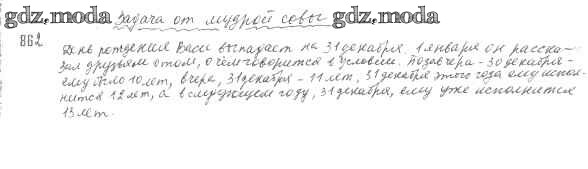 gdz.moda Задача от мудрой совы gdz.moda
862
День рождения Васи выпадает на 31 декабря. 1 января он расска-
зал друзьям о том, о чём говорится в условии. Позавчера - 30 декабря -
ему было 10 лет, вчера, 31 декабря - 11 лет, 31 декабря этого года ему испол-
нится 12 лет, а в следующем году, 31 декабря, ему уже исполнится
13 лет.